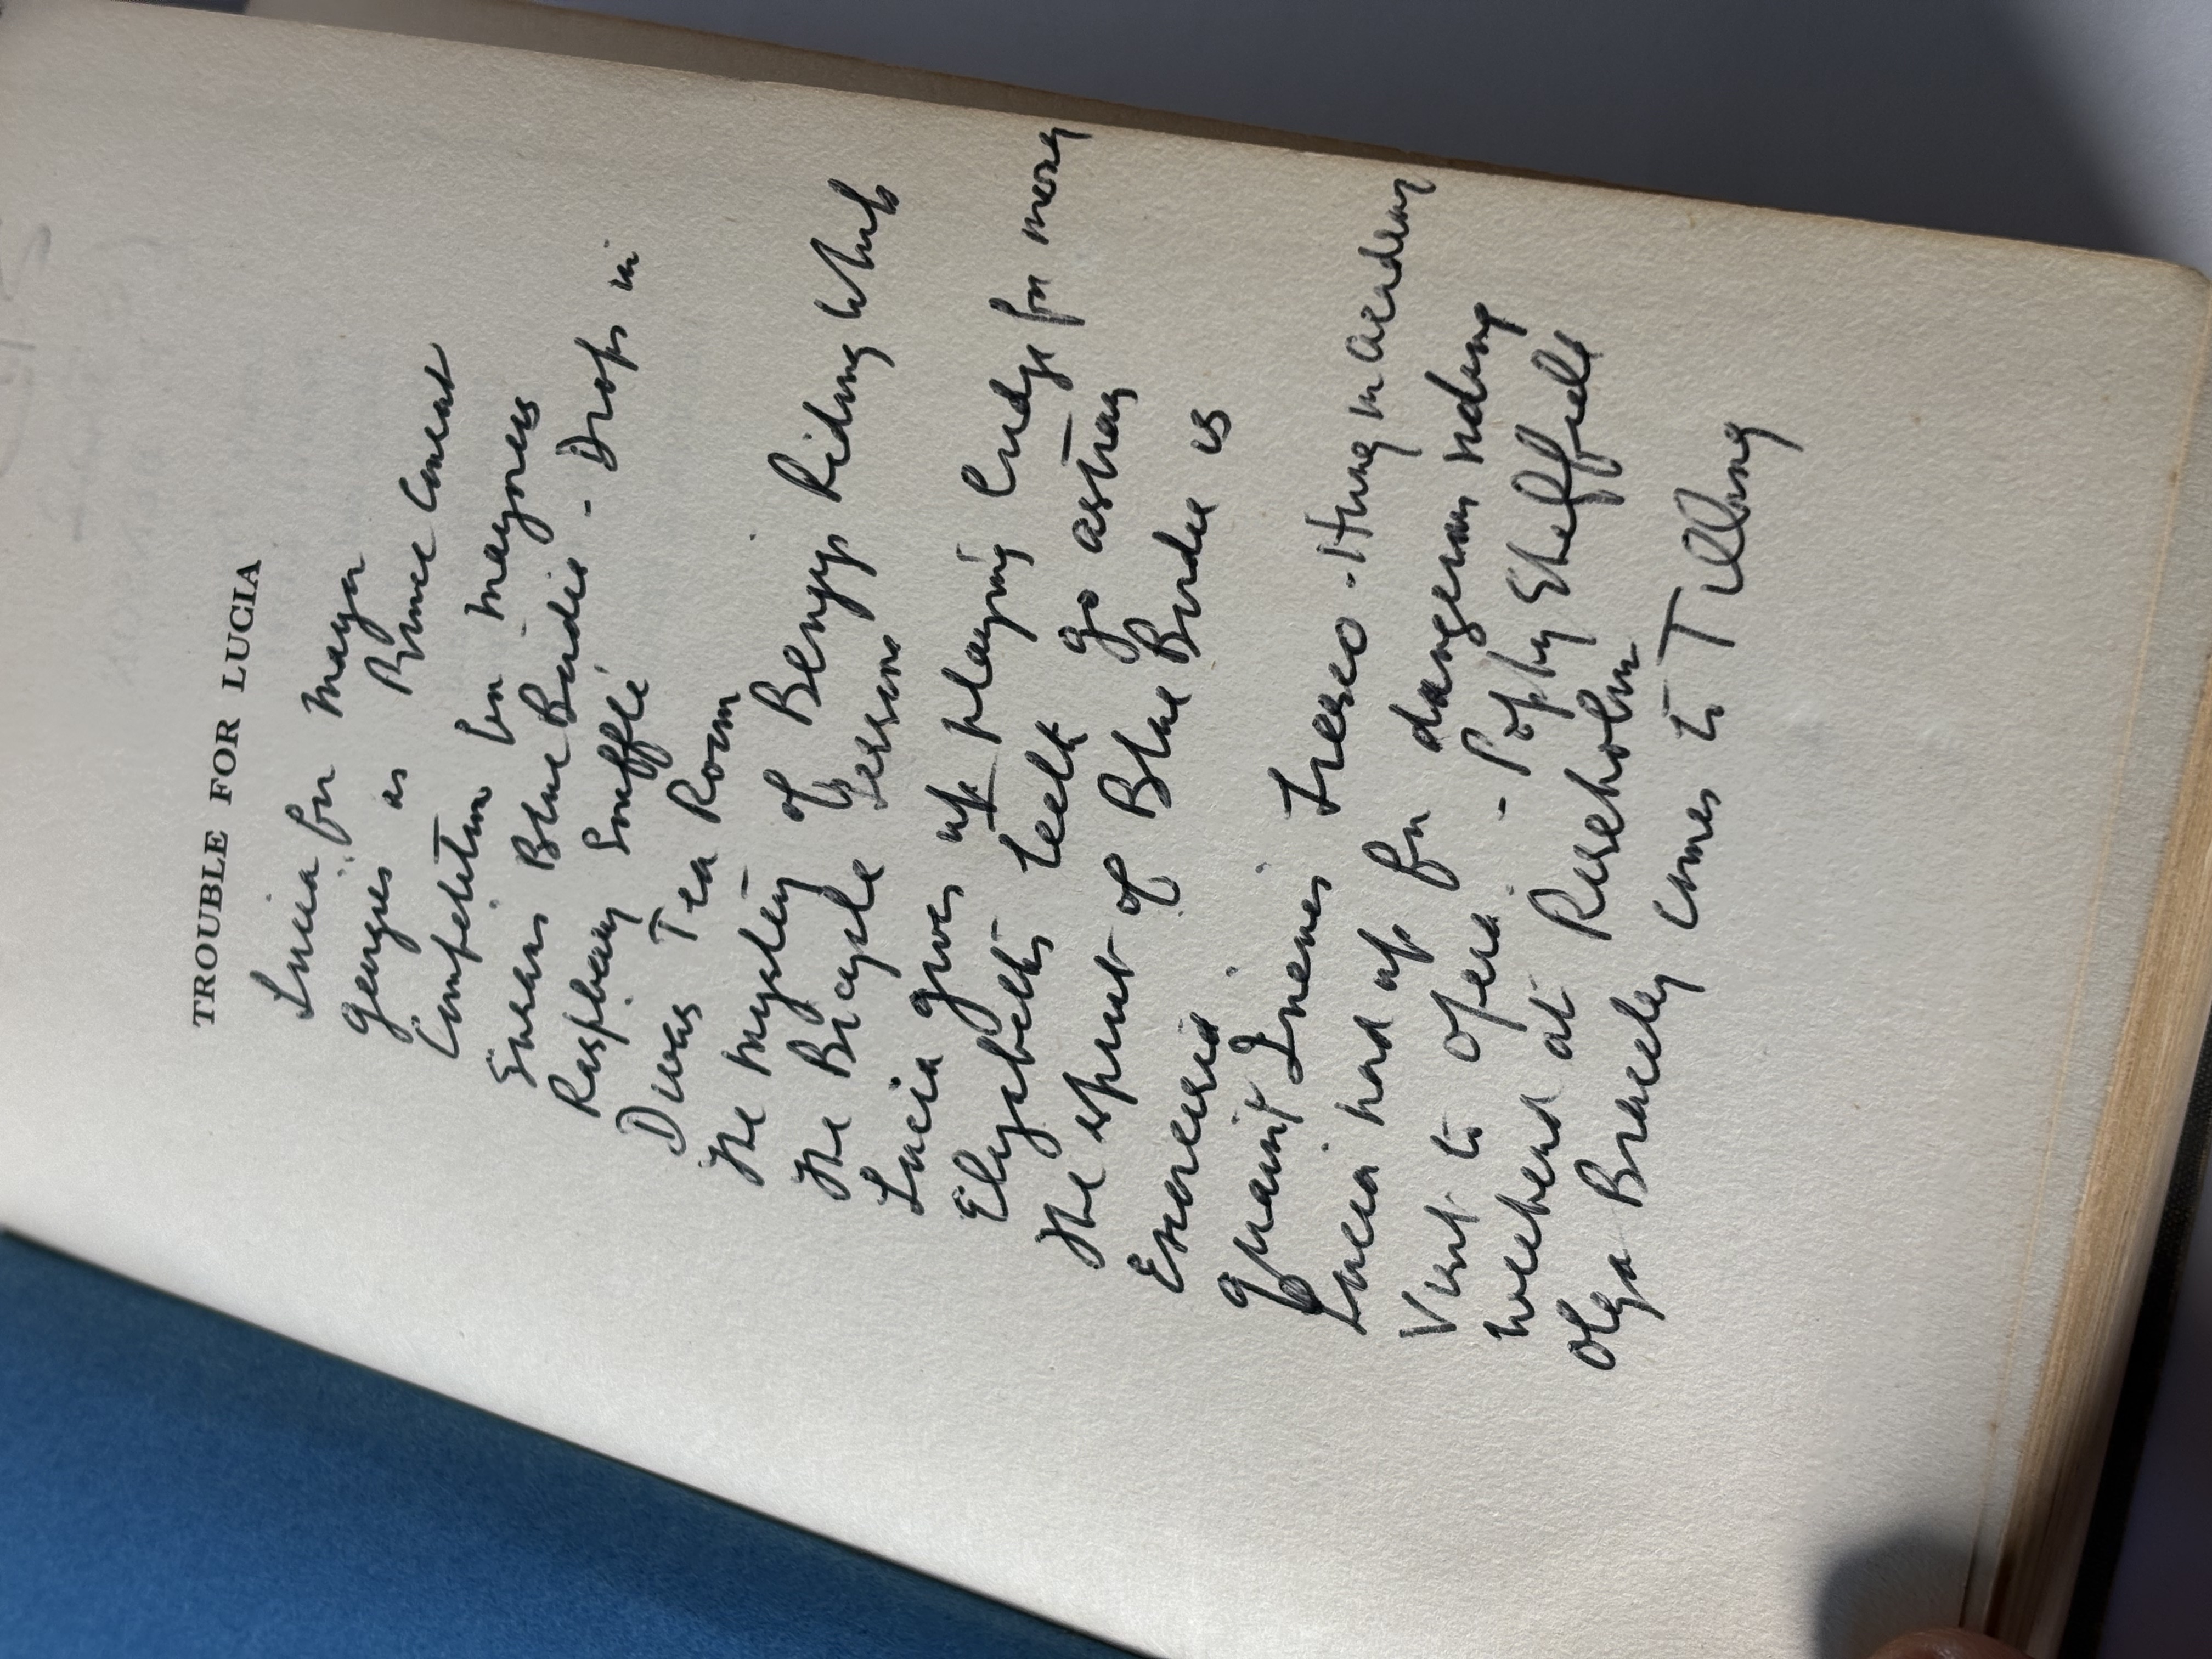 TROUBLE FOR LUCIA
Lucia for Mayor
Georgie as Prince Consort
Competition for Mayoress
Susan's Blue Birdie - Drops in
Raspberry Soufflé
Divas Tea Room
The Mystery of Benjy's Riding Whip
The Bicycle Lesson
Lucia gives up playing bridge for money
Elizabeth's teeth go astray
The spirit of Blue Birdie is
Exorcised
Quaint Irene's Fresco - Hung in academy
Lucia had up for dangerous riding
Visit to opera - Poppy Sheffield
Weekend at Riseholme
Olga Bracely comes to Tilling